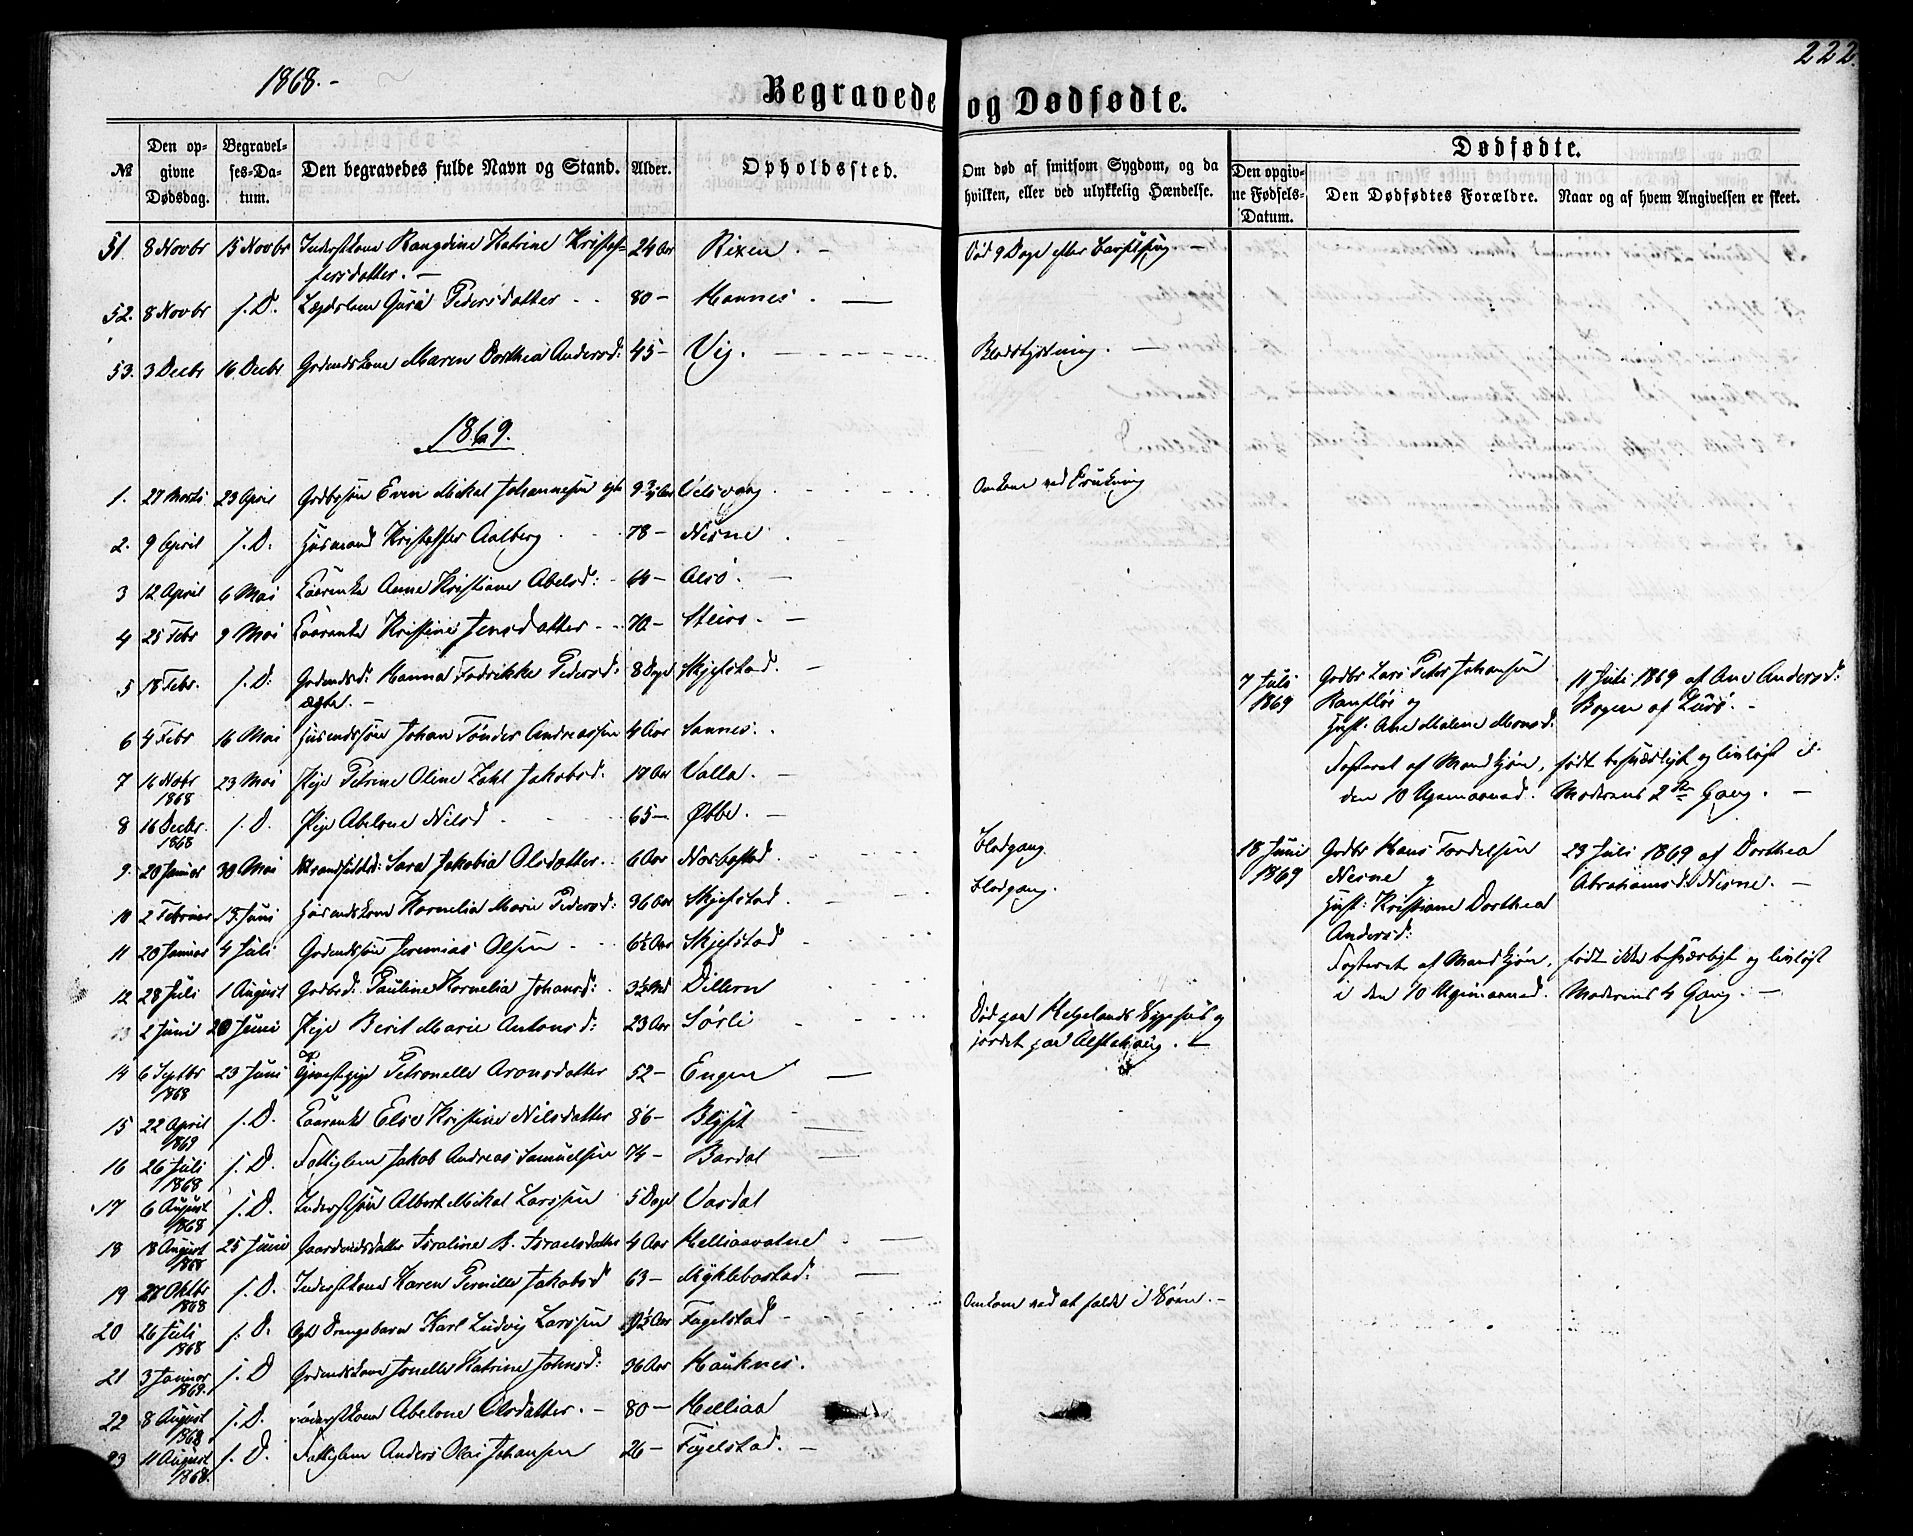 1868.-
222.
Begravede og Dødfødte.
№ Den opgivne Dødsdag. Begravelses-Datum. Den begravedes fulde Navn og Stand. Alder. Opholdssted. Om død af smitsom Sygdom, og da hvilken, eller ved ulykkelig Hændelse. Dødfødte. Den opgivne Fødsels-Datum. Den Dødfødtes Forældre. Naar og af hvem Angivelsen er skeet.
51 8 Novbr 15 Novbr Inderstkone Rangdine Katrine Kristoffersdatter. - 24 Aar Rixen - Død 9 Dage efter Barselseng. -
52. 8 Novbr s. D. Lægdslem Guru Pedersdatter 80 - Hannes. -
53. 3 Decbr 16 Decbr Gaardmandskone Maren Dorthea Andersd: 45 - Vig. - Blodstyrtning. -
1869.
1. 27 Marts 23 April Gaardbrsøn Even Mikal Johannesen 9 Aar Omkom ved Drukning
2. 9 April s. D. Husmand Kristoffer Aalberg 78 - Nesne
3 12 April 6 Mai Kaarenke Anne Kristiane Abelsd: Alsø. -
4 25 Febr 9 Mai Kaarenke Kristine Jensdatter 70 - Steiro. -
5 18 Febr. s. D. Gaardmandsd: Hanna Fredrikke Pedersd: ægte. - 8 Dage Skjelstad. -
6 4 Febr 16 Mai Husmandssøn Johan Tønder Andreassen 4 Aar Sannes.
7 16 Novbr 1868 23 Mai Pige Petrine Oline Zahl Jakobsd. Valla. -
8 16 Decbr. 1868 s. D. Pige Abelone Nilsd 65 - Øbbe. -
9 20 Januar 30 Mai Strandsidderd: Sara Jakobia Olsdatter 6 Aar Blodgang.
10 2 Februar 13 Juni Husmandskone Kornelia Marie Pedersd: 36 Aar Skjelstad Blodgang.
11 20 Januar 4 Juli Gaardmandssøn Jeremias Olsen 6½ Aar Skjelstad
12 28 Juli 1 August Gaardbrd: Pauline Kornelia Johansd: Dillern
13 2 Juni 20 Juni Pige Berit Marie Antonsd: 23 Aar Sørli Død paa Helgelands Sygehus og jordet paa Alstahaug.
14 6 Septbr 1868 23 Juni Tjenestepige Petronelle Aronsdatter 52 - Engen -
15 22 April 1869 s. D. Kaarenke Else Kristine Nilsdatter 86 -
16 26 Juli 1868 s. D. Fattiglem Jakob Andreas Samuelsen 74 - Bardal
17 6 August 1868 s. D. Inderstsøn Albert Mikal Larssen 5 Dage Vardal
18 18 August 1868 25 Juni Gaardmandsdatter Israeline B. Israelsdatter 4 Aar Helliaavatne -
19 27 Oktbr 1868 s. D. Inderstkone Karen Pernille Jakobsd 63 - Myklebostad. -
20 26 Juli 1868 s. D. Drengebarn Karl Ludvig Larssen Fagelstad - Omkom ved at falde i Søen. -
21 3 Januar 1869. s. D Gaardmandskone Jonelle Katrine Johnsd: 36 Aar Hauknes.
22 8 August 1868 s. D. Inderstkone Abelone Olsdatter. - 80 - Helliaa
23 11 August 1868. s. D. Fattiglem Anders Olai Johansen 26 - Fagelstad. -
7 Juli 1869 Gaardbr Lars Peter Johansen og Hust. Ane Malene Monsd: 11 Juli 1869 af Ane Andersd: Bogen af Lurø. -
Fosteret af Mandkjøn, født besværligt og livløst i
den 10 Ugemaaned. Moderens 2den Gang. -
18 Juni 1869 Gaardbr Hans Nesne og Hust: Kristiane Dorthea Andersd: 23 Juli 1869 af Dorthea Abrahamsd: Nesne. -
Fosteret af Mandkjøn, født ikke besværligt og livløst
i den 10 Ugemaaned. Moderens 4 Gang. -